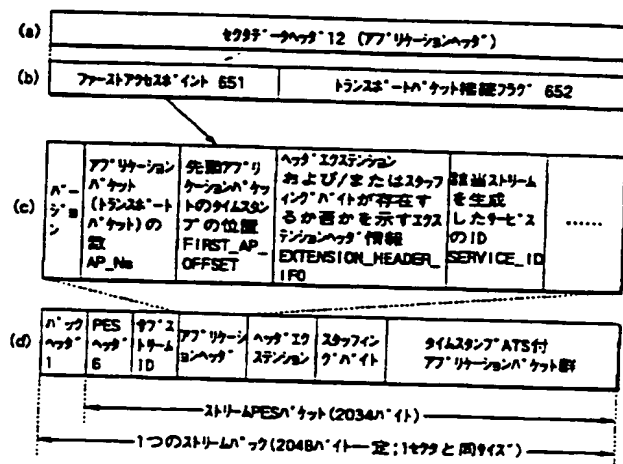 (a) セクタデータヘッダ12 (アプリケーションヘッダ)
(b) ファーストアクセスポイント 651
トランスポートパケット接続フラグ 652
(c)
バー
ジョ
ン
アプリケーション
パケット
(トランスポート
パケット)の
数
AP_Ns
先頭アプリ
ケーションパケッ
トのタイムスタン
プの位置
FIRST_AP_
OFFSET
ヘッダエクステンション
および/またはスタッフ
ィングバイトが存在す
るか否かを示すエクス
テンションヘッダ情報
EXTENSION_HEADER_
IFO
該当ストリーム
を生成
したサービス
のID
SERVICE_ID
……
(d)
パック
ヘッダ
1
PES
ヘッダ
6
サブス
トリーム
ID
アプリケーシ
ョンヘッダ
ヘッダエク
ステンション
スタッフィン
グバイト
タイムスタンプATS付
アプリケーションパケット群
ストリームPESパケット(2034バイト)
1つのストリームパック(2048バイト一定;1セクタと同サイズ)